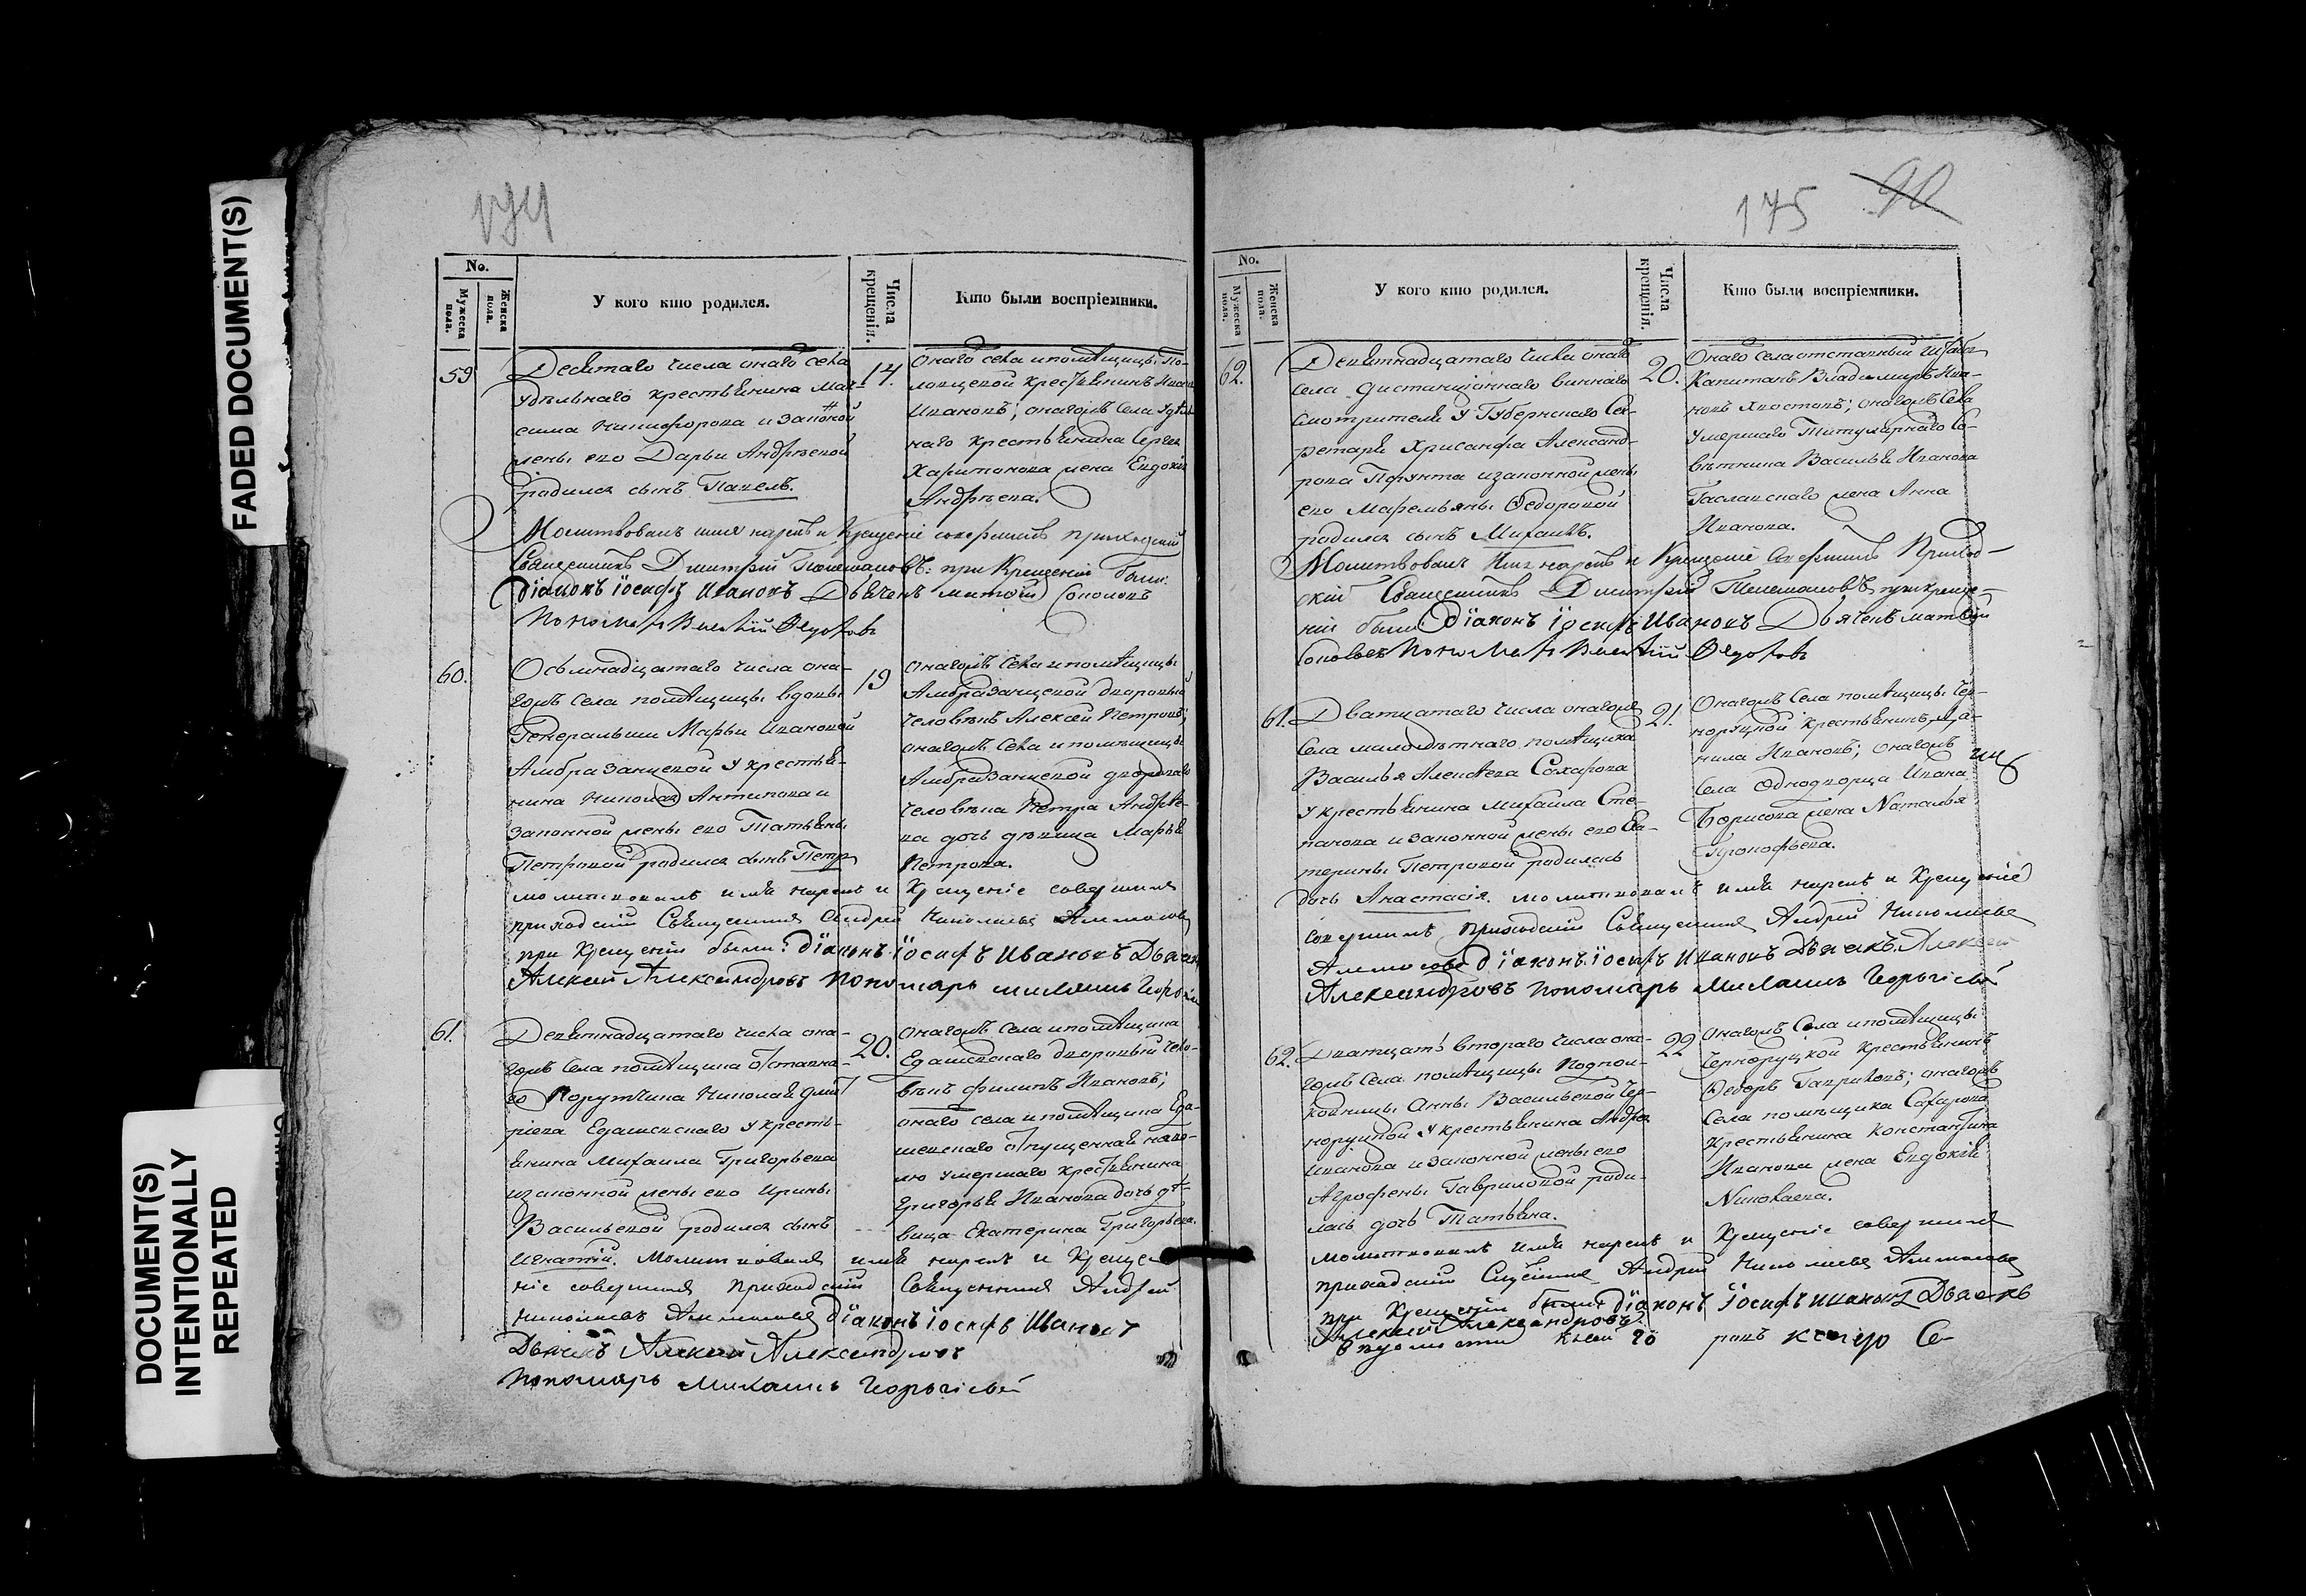 FADED DOCUMENT(S)
DOCUMENT(S)
INTENTIONALLY
REPEATED
174
No.
Мужеска пола.
Женска пола.
У кого кто родился.
Числа крещенія.
Кто были воспріемники.
59
Десятаго числа онаго села
удѣльнаго крестьянина Мак-
сима Никифорова и законой
жены его Дарьи Андрѣевой
родился сынъ Павелъ.
14.
Онаго села помѣщицы По-
крестьянинъ Иванъ
Ивановъ; онагожъ села удѣль-
наго крестьянина Сергея
Харитонова жена Евдокія
Андрѣева.
Молитвовалъ имя нарекъ и Крещеніе совершилъ приходскій
Священникъ Дмитрій при Крещеніи были:
Діаконъ Іосифъ Ивановъ Дьячекъ Матвѣй Соколовъ
Пономарь Федоровъ
60.
Осьмнадцатаго числа она-
гожъ села помѣщицы вдовы
Генеральши Марьи Ивановой
Амбразанцевой у крестья-
нина Николая Антипова и
законной жены его Татьяны
Петровой родился сынъ Петр
19
онагожъ села помѣщицы
Амбразанцевой дворовый
человѣкъ Алексей Петровъ;
онагожъ села помещицы
Амбразанцевой дворового
человѣка Петра Андрѣе-
ва дочь девица Марья
Петрова.
молитвовалъ имя нарекъ и Крещеніе совершилъ
приходскій Священникъ Андрей Николаевъ
при Крещеніи были: діаконъ Іосифъ Ивановъ Дьячекъ
Алексей Александровъ Пономарь
61.
Девятнадцатаго числа она-
гожъ села помѣщика отставна-
го Порутчика Николая Дмит
ріева у кресть-
янина Михаила Григорьева
и законной жены его Ирины
Васильевой родился сынъ
Игнатій. Молитвовалъ имя нарекъ и Креще-
20.
онагожъ села помѣщика
дворовый чело-
вѣкъ Филипъ Ивановъ;
онаго села помѣщика
отпущенная на во-
лю умершаго крестьянина
Григорья Иванова дочь дѣ-
вица Екатерина Григорьева.
ніе совершилъ приходскій Священникъ Андрей
Николаевъ діаконъ Іосифъ Ивановъ
Дьячекъ Алексей Александровъ
Пономарь
175
No.
Мужеска пола.
Женска пола.
У кого кто родился.
Числа крещенія.
Кто были воспріемники.
62.
Девятнадцатаго числа онаго
села дистанціоннаго виннаго
смотрителя у Губернскаго Сек-
ретаря Хрисанфа Александ-
рова и законной жены
его Федоровой
родился сынъ Михаилъ.
20.
Онаго села отставный Штабсъ
Капитанъ Владимиръ Ива-
новъ Хвостовъ; онагожъ села
умершаго Титулярнаго Со-
вѣтника Василья Иванова
жена Анна
Иванова.
Молитвовалъ Имя нарекъ и Крещеніе Совершилъ Приход-
скій Священникъ Дмитрій при креще-
ніи были: Діаконъ Іосифъ Ивановъ Дьячекъ Матвѣй
Соколовъ Пономарь Федоровъ
61.
Дватцатаго числа онагожъ
села малолѣтнаго помѣщика
Василья Алексѣева Сахарова
у крестьянина Михаила Сте-
панова и законной жены его Ека-
терины Петровой родилась
дочь Анастасія. молитвовалъ имя нарекъ и Крещеніе
21.
Онагожъ села помѣщицы Чер-
норуцкой крестьянинъ Да-
нила Ивановъ; онагожъ
села Однодворца Ивана
Борисова жена Наталья
Прокофьева.
совершилъ приходскій Священникъ Андрей Николаевъ
діаконъ Іосифъ Ивановъ Дьячекъ Алексей
Александровъ Пономарь
62.
Дватцать втораго числа она-
гожъ села помѣщицы Подпол-
ковницы Анны Васильевой Чер-
норуцкой у крестьянина Андрея
Иванова и законной жены его
Агрофены Гавриловой роди-
лась дочь Татьяна.
22
онагожъ села помѣщицы
Чернорутцкой крестьянинъ
Федоръ Гавриловъ; онагожъ
села помещика Сахарова
крестьянина Константина
Иванова жена Евдокія
Николаева.
молитвовалъ имя нарекъ и Крещеніе совершилъ
приходскій Священникъ Андрей Николаевъ
при Крещеніи были: діаконъ Іосифъ Ивановъ Дьячекъ
Алексей Александровъ